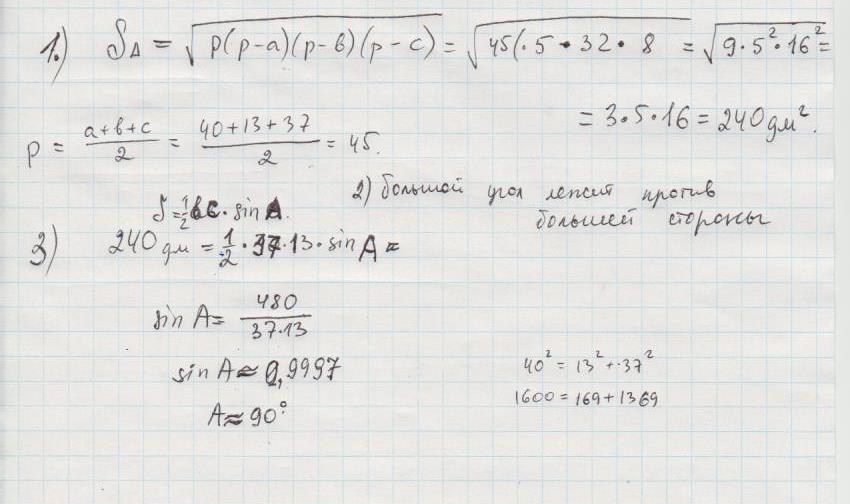 1.) S△ = √p(p-a)(p-в)(p-c) = √45(·5·32·8 = √9·5²·16² =
= 3·5·16 = 240 дм².
p = (a+в+c)/2 = (40+13+37)/2 = 45.
2) большой угол лежит против
большей стороны
S = 1/2 вс · sin A.
3) 240 дм = 1/2 · 37 · 13 · sin A =
sin A = 480/(37·13)
sin A ≈ 0,9997
A ≈ 90°
40² = 13² + 37²
1600 = 169 + 1369